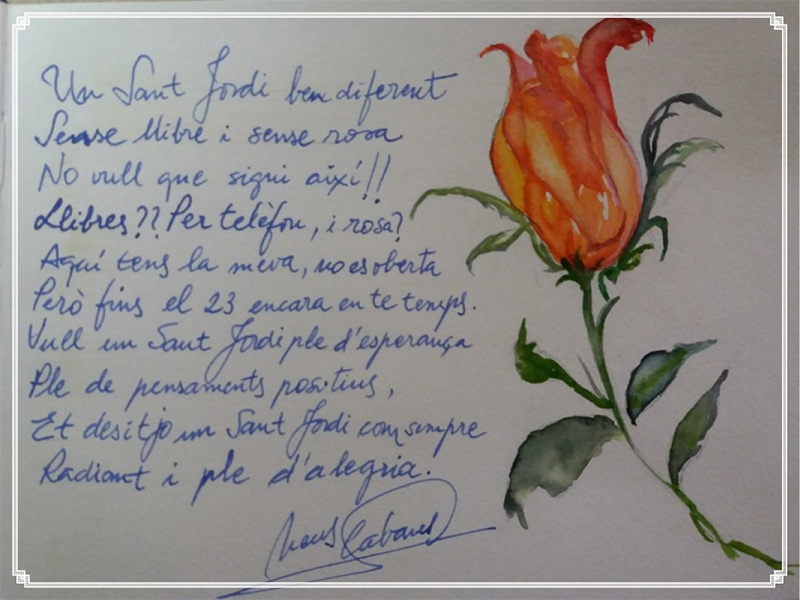 Un Sant Jordi ben diferent
Sense llibre i sense rosa
No vull que sigui així!!
Llibres?? Per telèfon, i rosa?
Aquí tens la meva, no es oberta
Però fins el 23 encara en te temps.
Vull un Sant Jordi ple d'esperança
Ple de pensaments positius,
Et desitjo un Sant Jordi com sempre
Radiant i ple d'alegria.